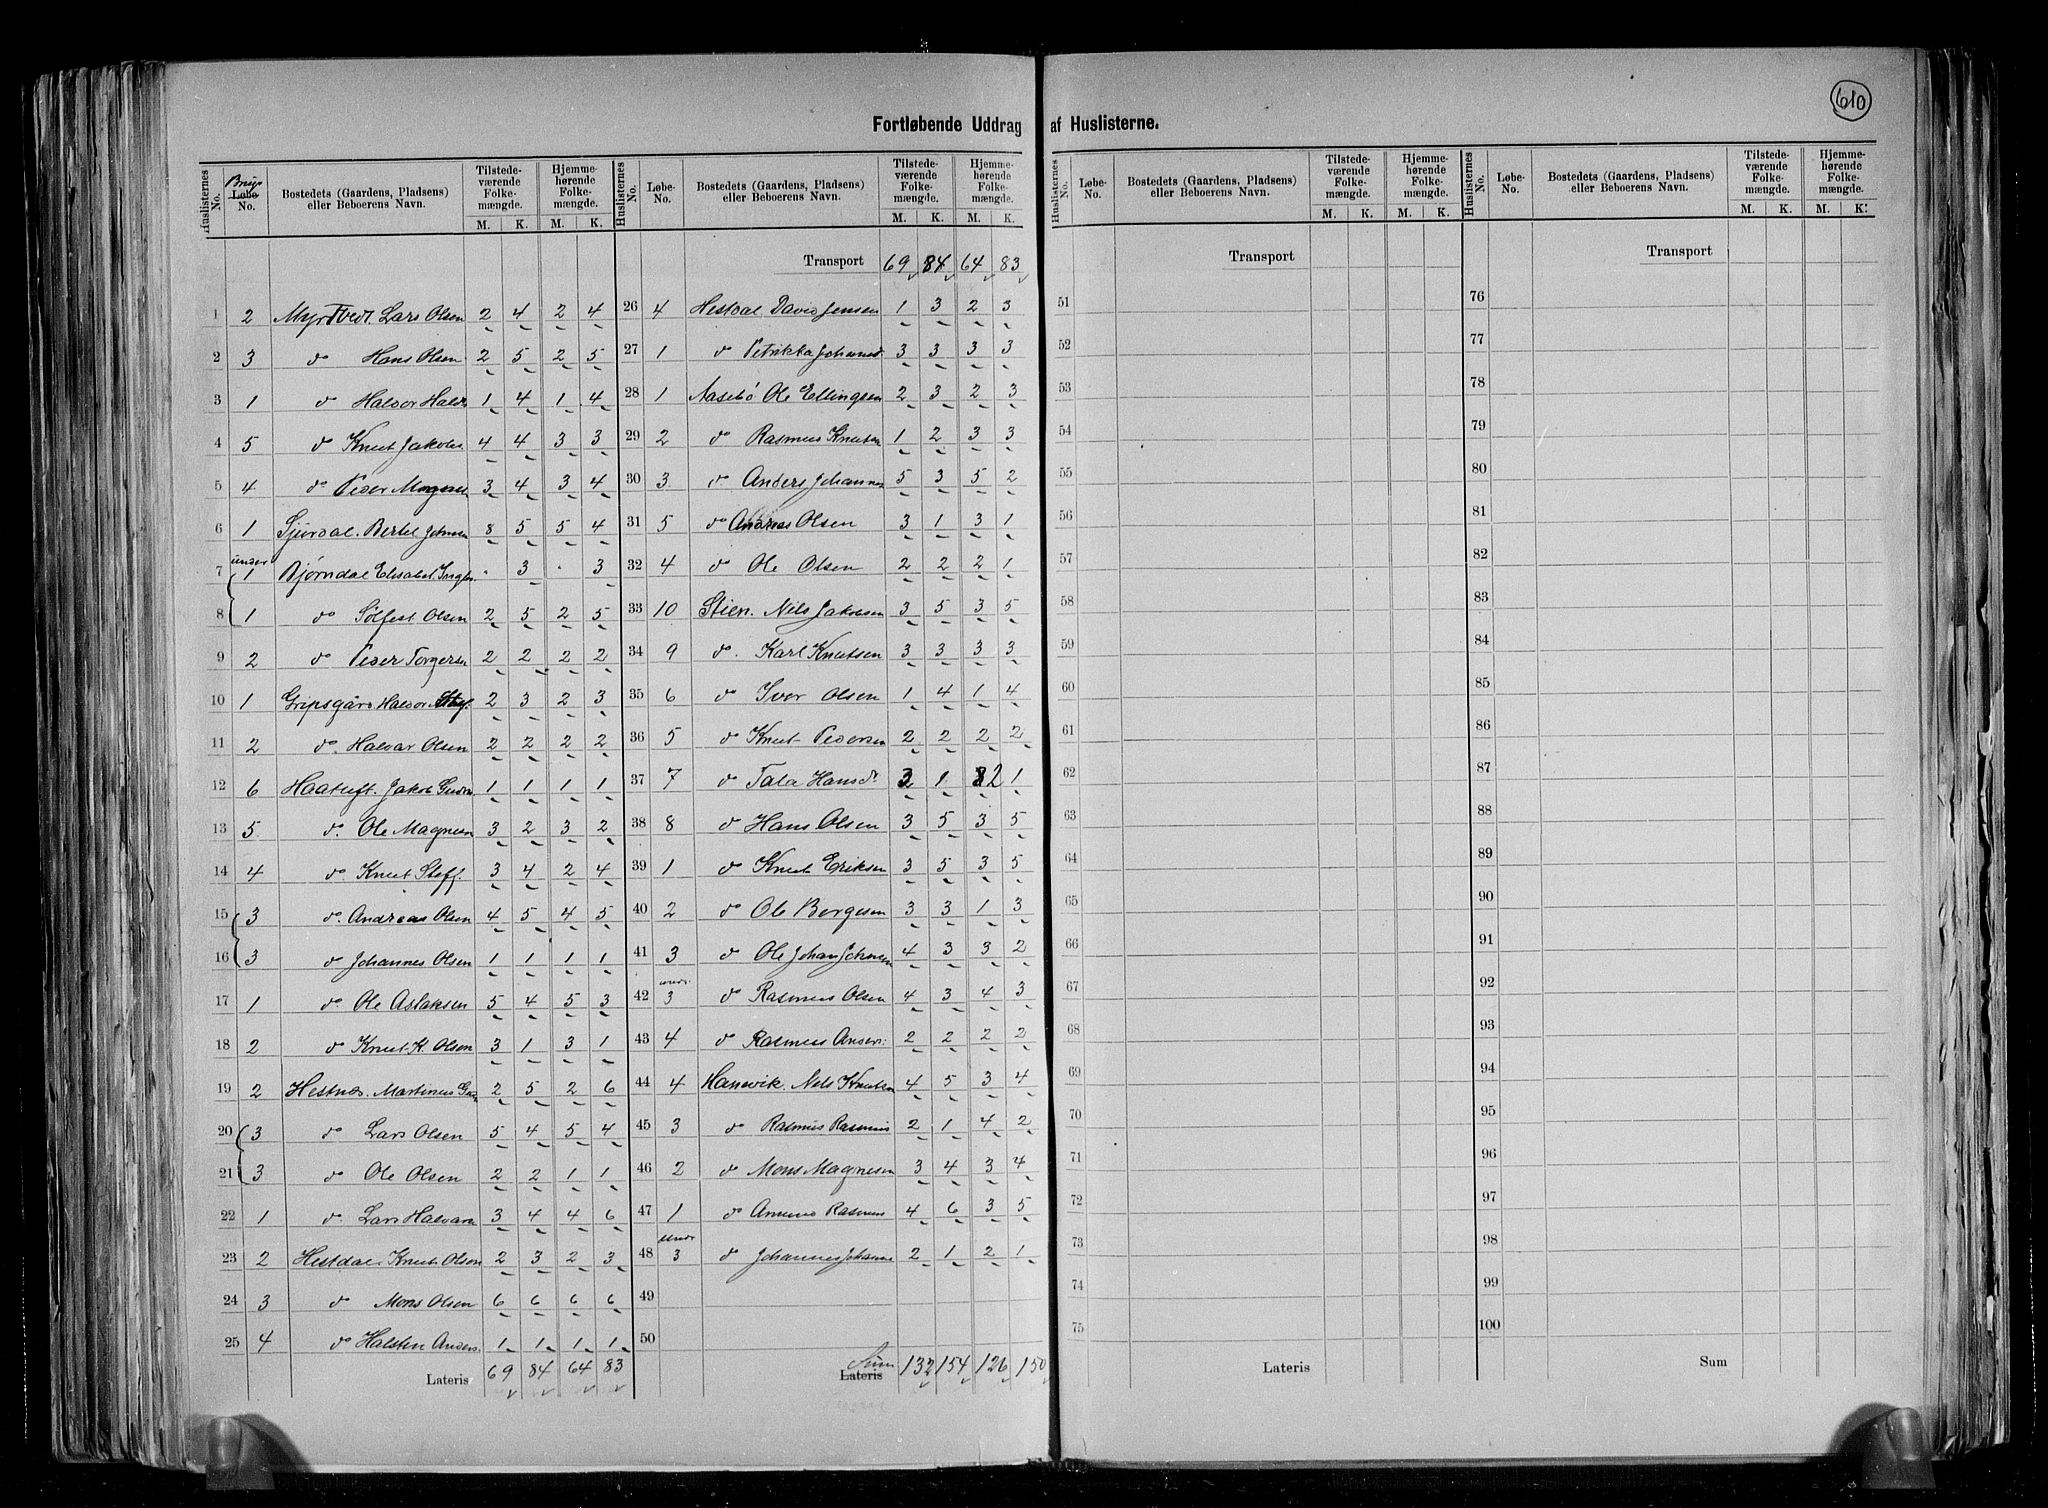 610
Fortløbende Uddrag af Huslisterne.
Huslisternes No. Brugs Løbe- No. Bostedets (Gaardens, Pladsens) eller Beboerens Navn. Tilstede-værende Folke-mængde. M. K. Hjemme-hørende Folke-mængde. M. K.
1 2 Myrtvedt. Lars Olsen 2 4 2 4
2 3 do Hans Olsen 2 5 2 5
3 1 do Halvor Halv 1 4 1 4
4 5 do Knut Jakobs 4 4 3 3
5 4 do Peder Mognesen 3 4 3 4
6 1 Sjurdal. Bertel Johnsen 8 5 5 4
7 under 1 Bjørndal Elisabet Ingbr. · 3 · 3
8 1 do Sølfest Olsen 2 5 2 5
9 2 do Peder Torgersen 2 2 2 2
10 1 Gripsgård Halvor 2 3 2 3
11 2 do Halvar Olsen 2 2 2 2
12 6 Haatuft. Jakob 1 1 1 1
13 5 do Ole Magnesen 3 2 3 2
14 4 do Knut Steff. 3 4 2 4
15 3 do Andreas Olsen 4 5 4 5
16 3 do Johannes Olsen 1 1 1 1
17 1 do Ole Aslaksen 5 4 5 3
18 2 do Knut K. Olsen 3 1 3 1
19 2 Hestnes. Martinus 2 5 2 6
20 3 do Lars Olsen 5 4 5 4
21 3 do Ole Olsen 2 2 1 1
22 1 do Lars Halvars 3 4 4 6
23 2 Hestdal. Knut Olson 2 3 2 3
24 3 do Mons Olsen 6 6 6 6
25 4 do Halsten Anders. 1 1 1 1
Lateris 69 84 64 83
Huslisternes No. Løbe-No. Bostedets (Gaardens, Pladsens) eller Beboerens Navn. Tilstede-værende Folke-mængde. M. K. Hjemme-hørende Folke-mængde. M. K.
Transport 69 84 64 83
26 4 Hestdal David Jensen 1 3 2 3
27 1 do Petrikka Johannesd 3 3 3 3
28 1 Aasebö Ole Ellingsen 2 3 2 3
29 2 do Rasmus Knutsen 1 2 3 3
30 3 do Anders Johannes 5 3 5 2
31 5 do Andreas Olsen 3 1 3 1
32 4 do Ole Olsen 2 2 2 1
33 10 Stien. Nils Jakobsen 3 5 3 5
34 9 do. Karl Knutsen 3 3 3 3
35 6 do Ivor Olsen 1 4 1 4
36 5 do Knut Pedersen 2 2 2 2
37 7 do Tala Hansdr 3 1 2 1
38 8 do Hans Olsen 3 5 3 5
39 1 do Knut Eriksen 3 5 3 5
40 2 do Ole Borgesen 3 3 1 3
41 3 do Ole Johan Johnsen 4 3 3 2
42 under 3 do Rasmus Olsen 4 3 4 3
43 4 do Rasmus Anders. 2 2 2 2
44 4 Hanevik. Nels Knutsen 4 5 3 4
45 3 do Rasmus Rasmus 2 1 4 2
46 2 do Mons Magnesen 3 4 3 4
47 1 do Amund Rasmus 4 6 3 5
48 under 3 do Johannes Johanne 2 1 2 1
49
50
Sum Lateris 132 154 126 150
Huslisternes No. Løbe-No. Bostedets (Gaardens, Pladsens) eller Beboerens Navn. Tilstede-værende Folke-mængde. M. K. Hjemme-hørende Folke-mængde. M. K.
Transport
51
52
53
54
55
56
57
58
59
60
61
62
63
64
65
66
67
68
69
70
71
72
73
74
75
Lateris
Huslisternes No. Løbe-No. Bostedets (Gaardens, Pladsens) eller Beboerens Navn. Tilstede-værende Folke-mængde. M. K. Hjemme-hørende Folke-mængde. M. K.
Transport
76
77
78
79
80
81
82
83
84
85
86
87
88
89
90
91
92
93
94
95
96
97
98
99
100
Sum